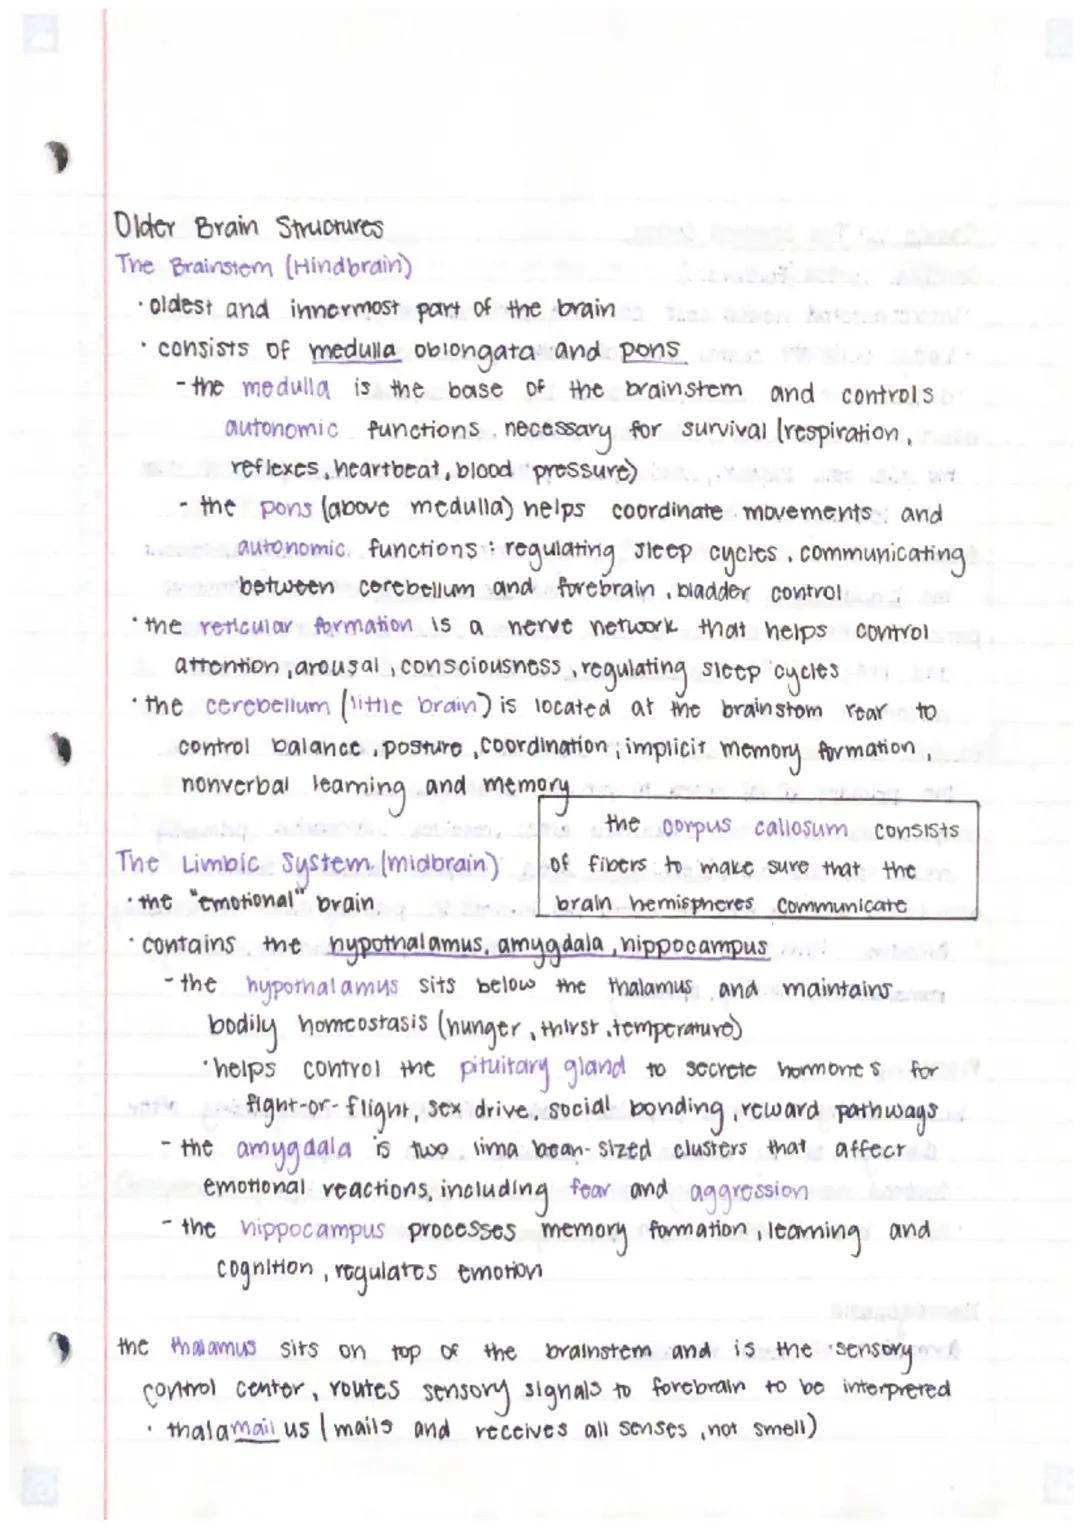 Older Brain Structures
The Brainstem (Hindbrain)
· oldest and innermost part of the brain
· consists of medulla oblongata and pons
- the medulla is the base of the brainstem and controls
autonomic functions necessary for survival (respiration,
reflexes, heartbeat, blood pressure)
- the pons (above medulla) helps coordinate movements and
autonomic functions : regulating sleep cycles, communicating
between cerebellum and forebrain, bladder control
· the reticular formation is a nerve network that helps control
attention, arousal, consciousness, regulating sleep cycles
· the cerebellum (little brain) is located at the brainstem rear to
control balance, posture, coordination; implicit memory formation,
nonverbal learning and memory
the corpus callosum consists
of fibers to make sure that the
brain hemispheres communicate
The Limbic System (midbrain)
· the "emotional" brain
· contains the hypothalamus, amygdala, hippocampus
- the hypothalamus sits below the thalamus and maintains
bodily homeostasis (hunger, thirst, temperature)
· helps control the pituitary gland to secrete hormones for
fight-or-flight, sex drive, social bonding, reward pathways
- the amygdala is two lima bean-sized clusters that affect
emotional reactions, including fear and aggression
- the hippocampus processes memory formation, learning and
cognition, regulates emotion
the thalamus sits on top of the brainstem and is the sensory
control center, routes sensory signals to forebrain to be interpreted
· thalamail us (mails and receives all senses, not smell)